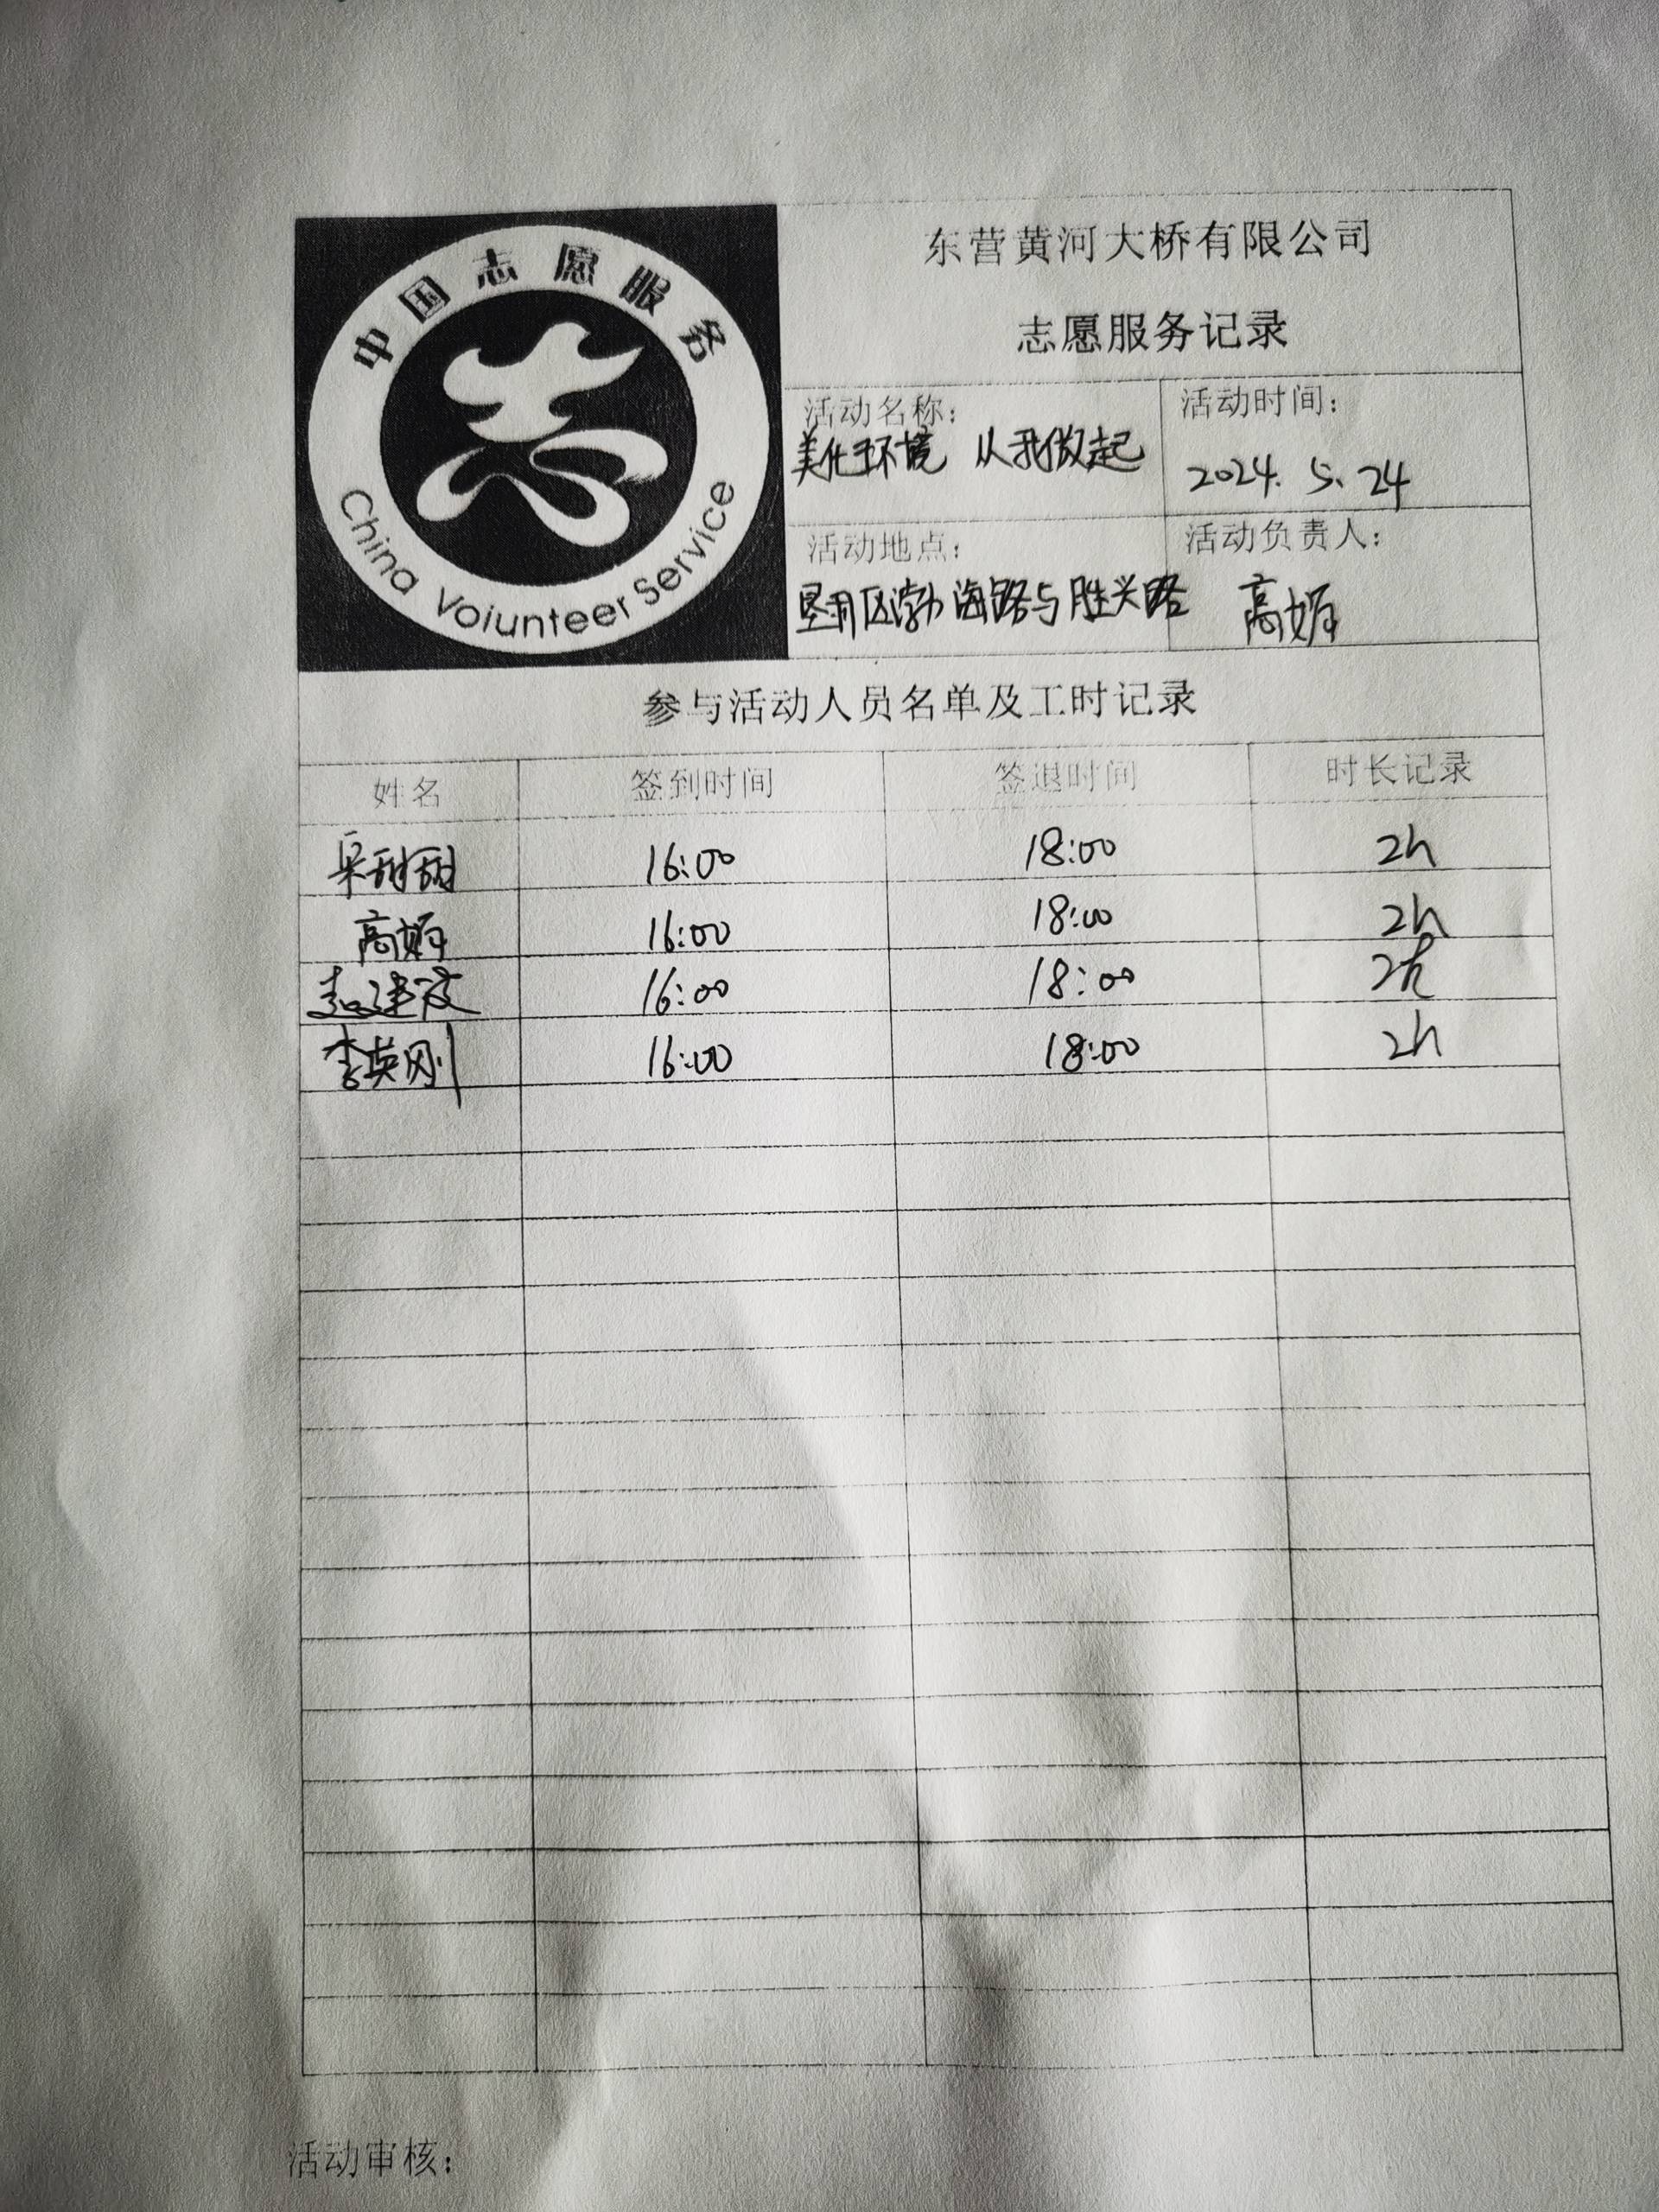 中国志愿服务
China Volunteer Service
东营黄河大桥有限公司
志愿服务记录
活动名称：
美化环境 从我做起
活动时间：
2024.5.24
活动地点：
垦利区渤海路与胜兴路
活动负责人：
高婷
参与活动人员名单及工时记录
姓名 签到时间 签退时间 时长记录
甜甜 16:00 18:00 2h
高婷 16:00 18:00 2h
赵建波 16:00 18:00 2h
李英刚 16:00 18:00 2h
活动审核：